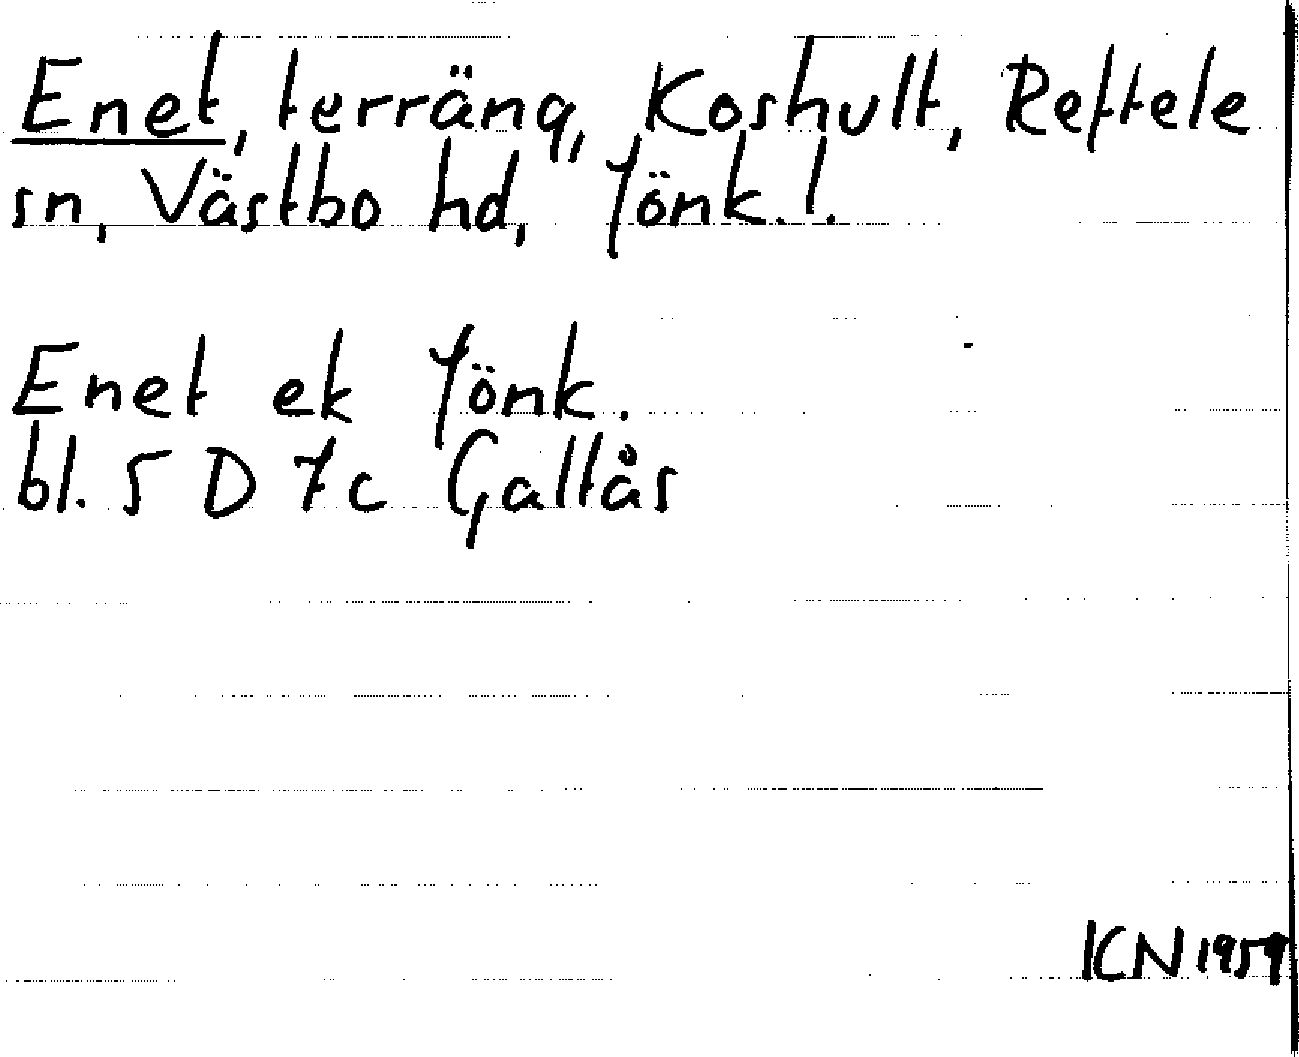 Enet, terräng, Koshult, Reftele
sn, Västbo hd, Jönk. l.
Enet ek Jönk.
bl. 5 D 7c Gallås
KN 1959